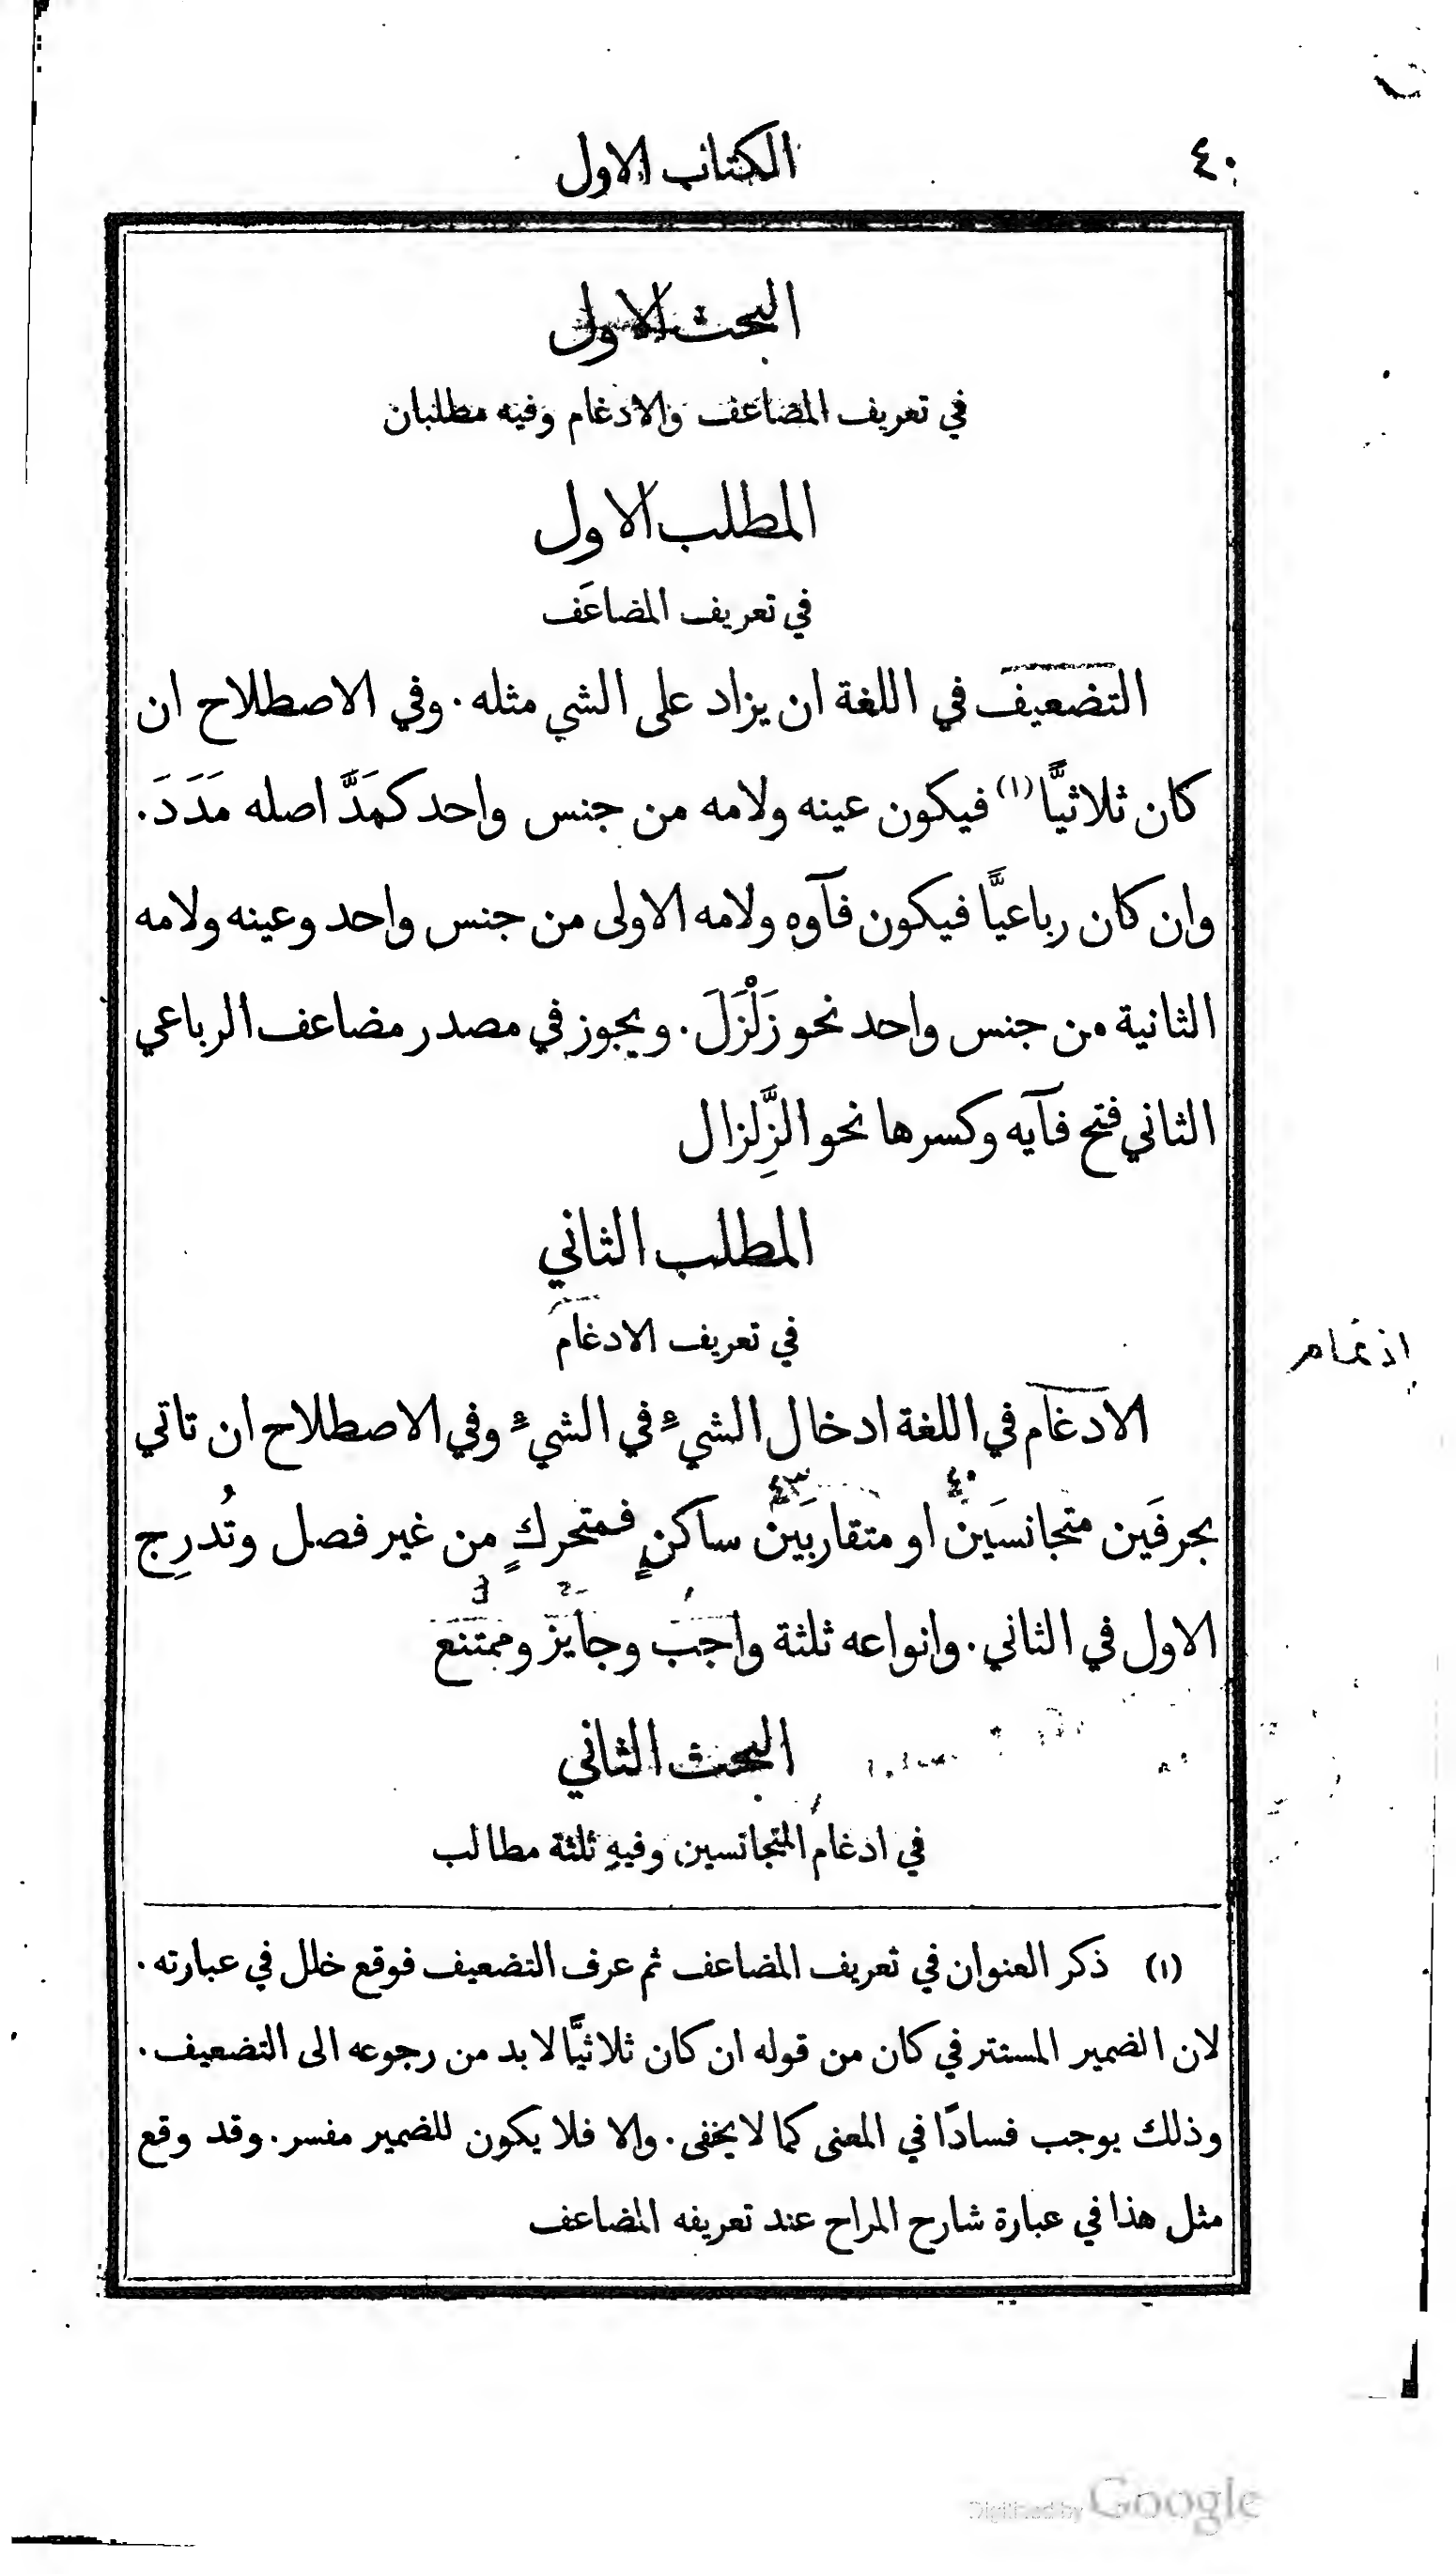 ٤٠
الكتاب الاول
البحث الاول
في تعريف المضاعف والادغام وفيه مطلبان
المطلب الاول
في تعريف المضاعَف
التضعيف في اللغة ان يزاد على الشي مثله. وفي الاصطلاح ان
كان ثلاثيًّا (١) فيكون عينه ولامه من جنس واحد كمَدَّ اصله مَدَدَ.
وان كان رباعيًّا فيكون فآوه ولامه الاولى من جنس واحد وعينه ولامه
الثانية من جنس واحد نحو زَلْزَلَ. ويجوز في مصدر مضاعف الرباعي
الثاني فتح فآيه وكسرها نحو الزَِّلزال
المطلب الثاني
في تعريف الادغام
إدغام
الادغام في اللغة ادخال الشيء في الشيء وفي الاصطلاح ان تاتي
بحرفَين متجانسَين او متقاربَين ساكنٍ فمتحركٍ من غير فصل وتُدرِج
الاول في الثاني. وانواعه ثلثة واجب وجايز وممتنع
البحث الثاني
في ادغام المتجانسين وفيهِ ثلثة مطالب
(١) ذكر العنوان في تعريف المضاعف ثم عرف التضعيف فوقع خلل في عبارته.
لان الضمير المستتر في كان من قوله ان كان ثلاثيًّا لا بد من رجوعه الى التضعيف.
وذلك يوجب فسادًا في المعنى كما لا يخفى. والا فلا يكون للضمير مفسر. وقد وقع
مثل هذا في عبارة شارح المراح عند تعريفه المضاعف
Digitized by Google